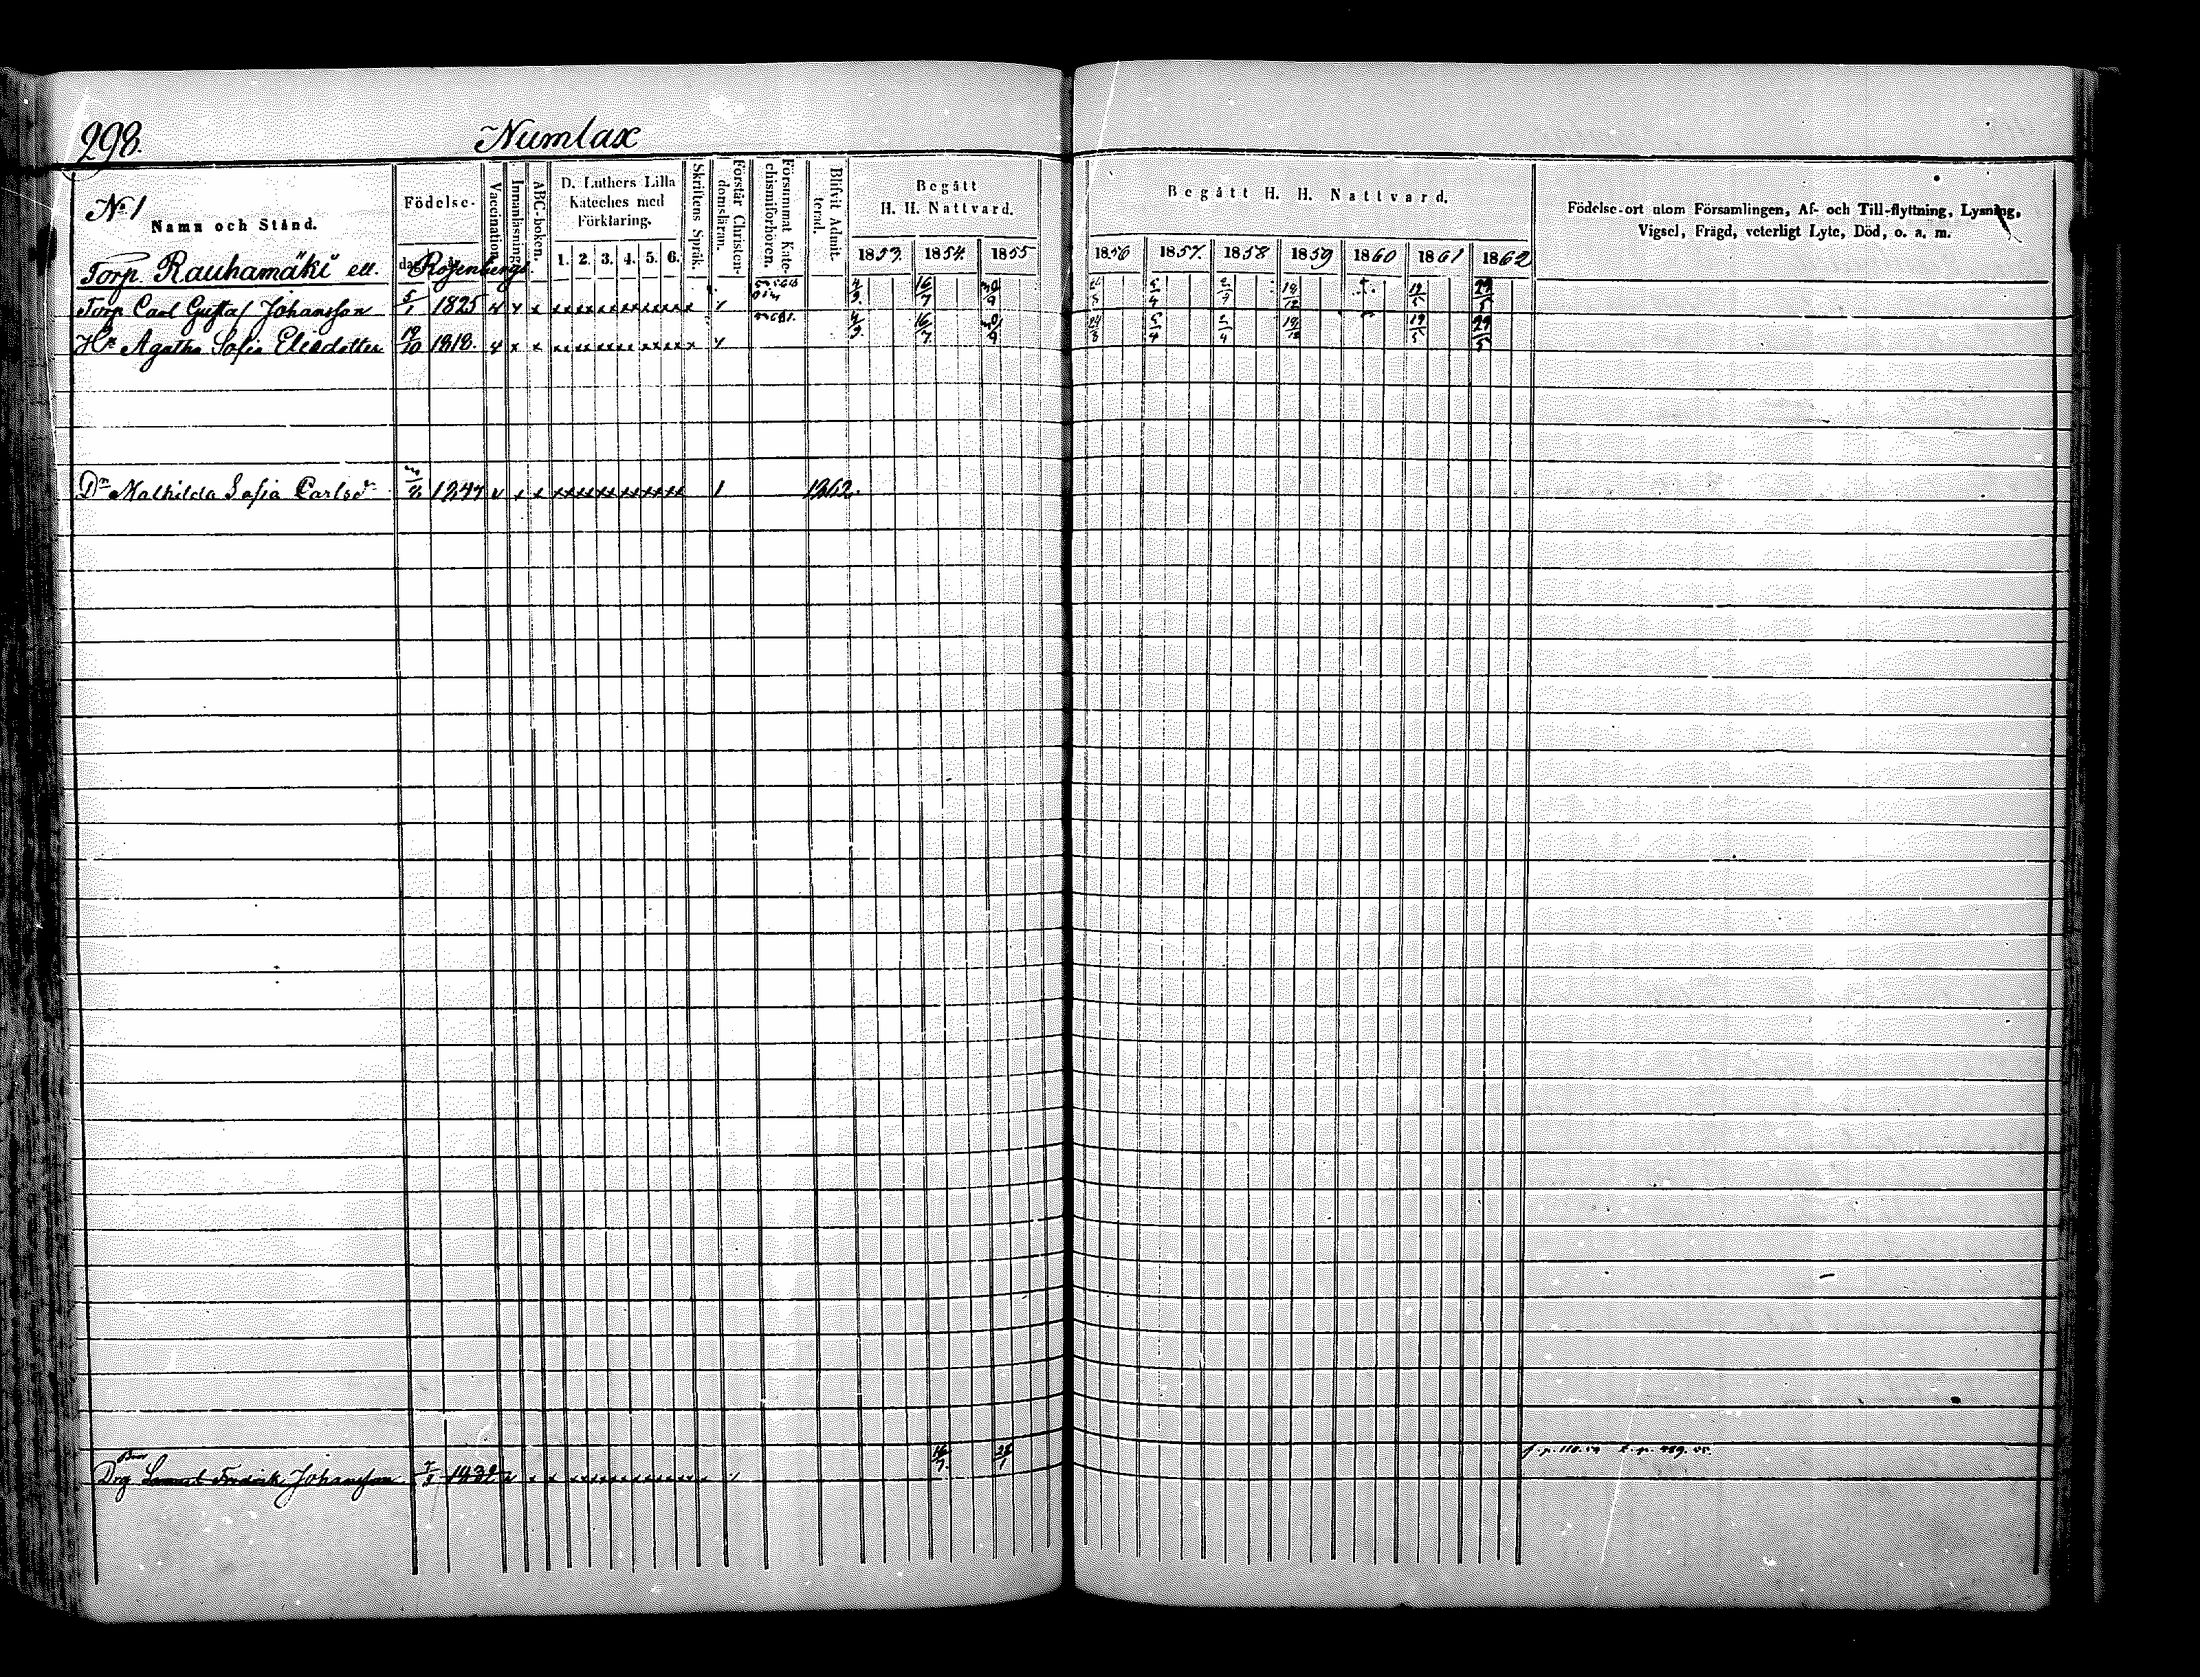 298.
Numlax
No 1
Namn och Stånd.
Födelse-
Vaccination.
Innanläsning.
ABC-boken.
D. Luthers Lilla
Kateches med
Förklaring.
1. 2. 3. 4. 5. 6.
Skriftens Språk.
Förstår Christen-
domsläran.
Försummat Kate-
chismiförhören.
Blifvit Admit-
terad.
Begått
H. H. Nattvard.
1853. 1854. 1855
Begått H. H. Nattvard.
1856 1857. 1858 1859 1860 1861 1862
Födelse-ort utom Församlingen, Af- och Till-flyttning, Lysning,
Vigsel, Frägd, veterligt Lyte, Död, o. a. m.
Torp. Rauhamäki ell. Rosenbergs.
Torp. Carl Gustaf Johansson 5/1 1825 4/9. 16/7 5/4 19/12 19/5 29/5
Hu Agatha Sofia Eliedotter 19/10 1818. 4/9. 16/7 24/3 5/4 19/12 19/5 29/5
Dr Mathilda Sofia Carlsd 1847 1862.
Bror
Drg Samuel Fredrik Johansson 1832 16/7